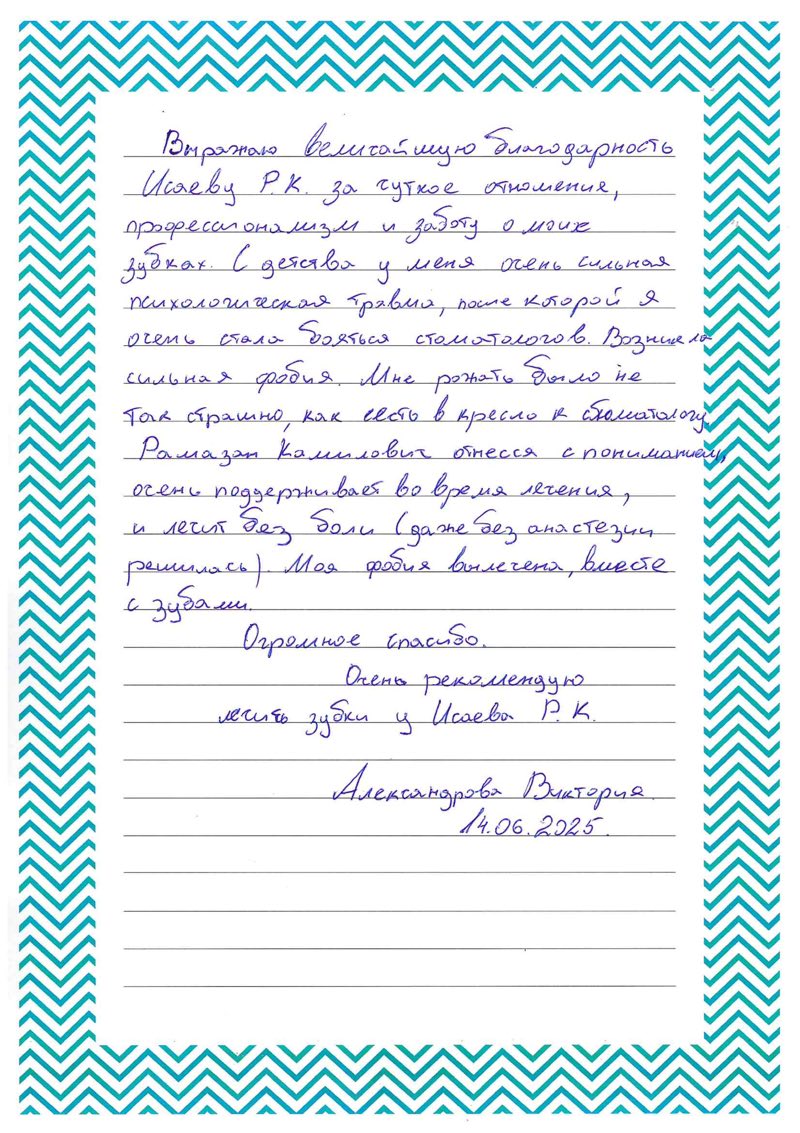 Выражаю величайшую благодарность
Исаеву Р.К. за чуткое отношения,
профессионализм и заботу о моих
зубках. С детства у меня очень сильная
психологическая травма, после которой я
очень стала бояться стоматологов. Возникла
сильная фобия. Мне рожать было не
так страшно, как сесть в кресло к стоматологу.
Рамазан Камилович отнесся с пониманием,
очень поддерживает во время лечения,
и лечит без боли (даже без анастезии
решилась). Моя фобия вылечена, вместе
с зубами.
Огромное спасибо.
Очень рекомендую
лечить зубки у Исаева Р.К.
Александрова Виктория.
14.06.2025.